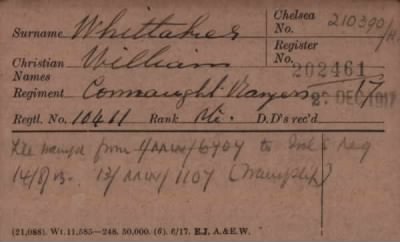 Surname Whittaker Chelsea No. 210390/H
Christian Names William Register No. 202461
Regiment Connaught Rangers 2 DEC 1917
Regtl. No. 10411 Rank Pte. D.D's rec'd
from 6404 to
14/8/13. 1104
(21,088). Wt. 11,585—248. 50,000. (6). 6/17. E.J. A.&E.W.